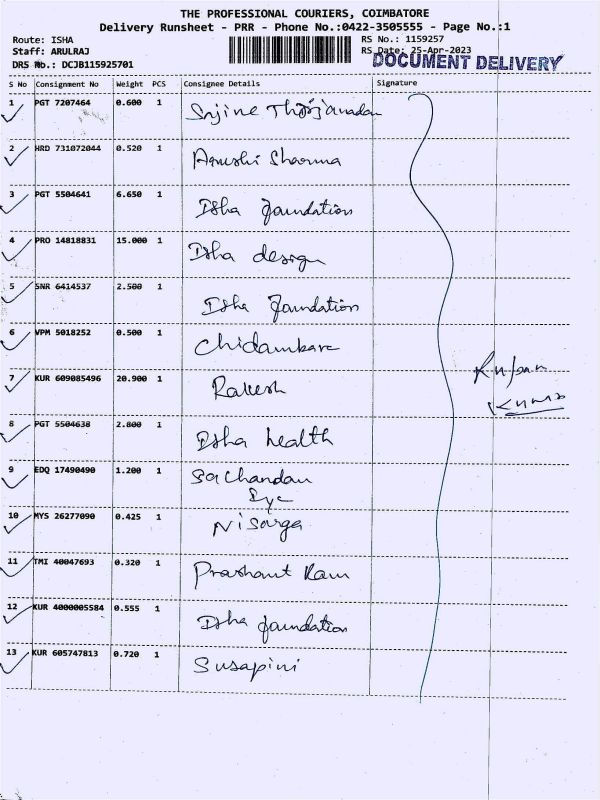 THE PROFESSIONAL COURIERS, COIMBATORE
Delivery Runsheet - PRR - Phone No.:0422-3505555 - Page No.:1
Route: ISHA
RS No.: 1159257
Staff: ARULRAJ
RS Date: 25-Apr-2023
DRS No.: DCJB115925701
DOCUMENT DELIVERY
S No Consignment No Weight PCS Consignee Details Signature
1 PGT 7207464 0.600 1
2 HRD 731072044 0.520 1 Arushi Sharma
3 PGT 5504641 6.650 1 Isha foundation
4 PRO 14818831 15.000 1 Isha design
5 SNR 6414537 2.500 1 Isha foundation
6 VPM 5018252 0.500 1 Chidambara
7 KUR 609085496 20.900 1 Rakesh
8 PGT 5504638 2.800 1 Isha health
9 EDQ 17490490 1.200 1
10 MYS 26277090 0.425 1 Nisarga
11 TMI 40047693 0.320 1 Prashant Ram
12 KUR 4000005584 0.555 1 Isha foundation
13 KUR 605747813 0.720 1 Susapini